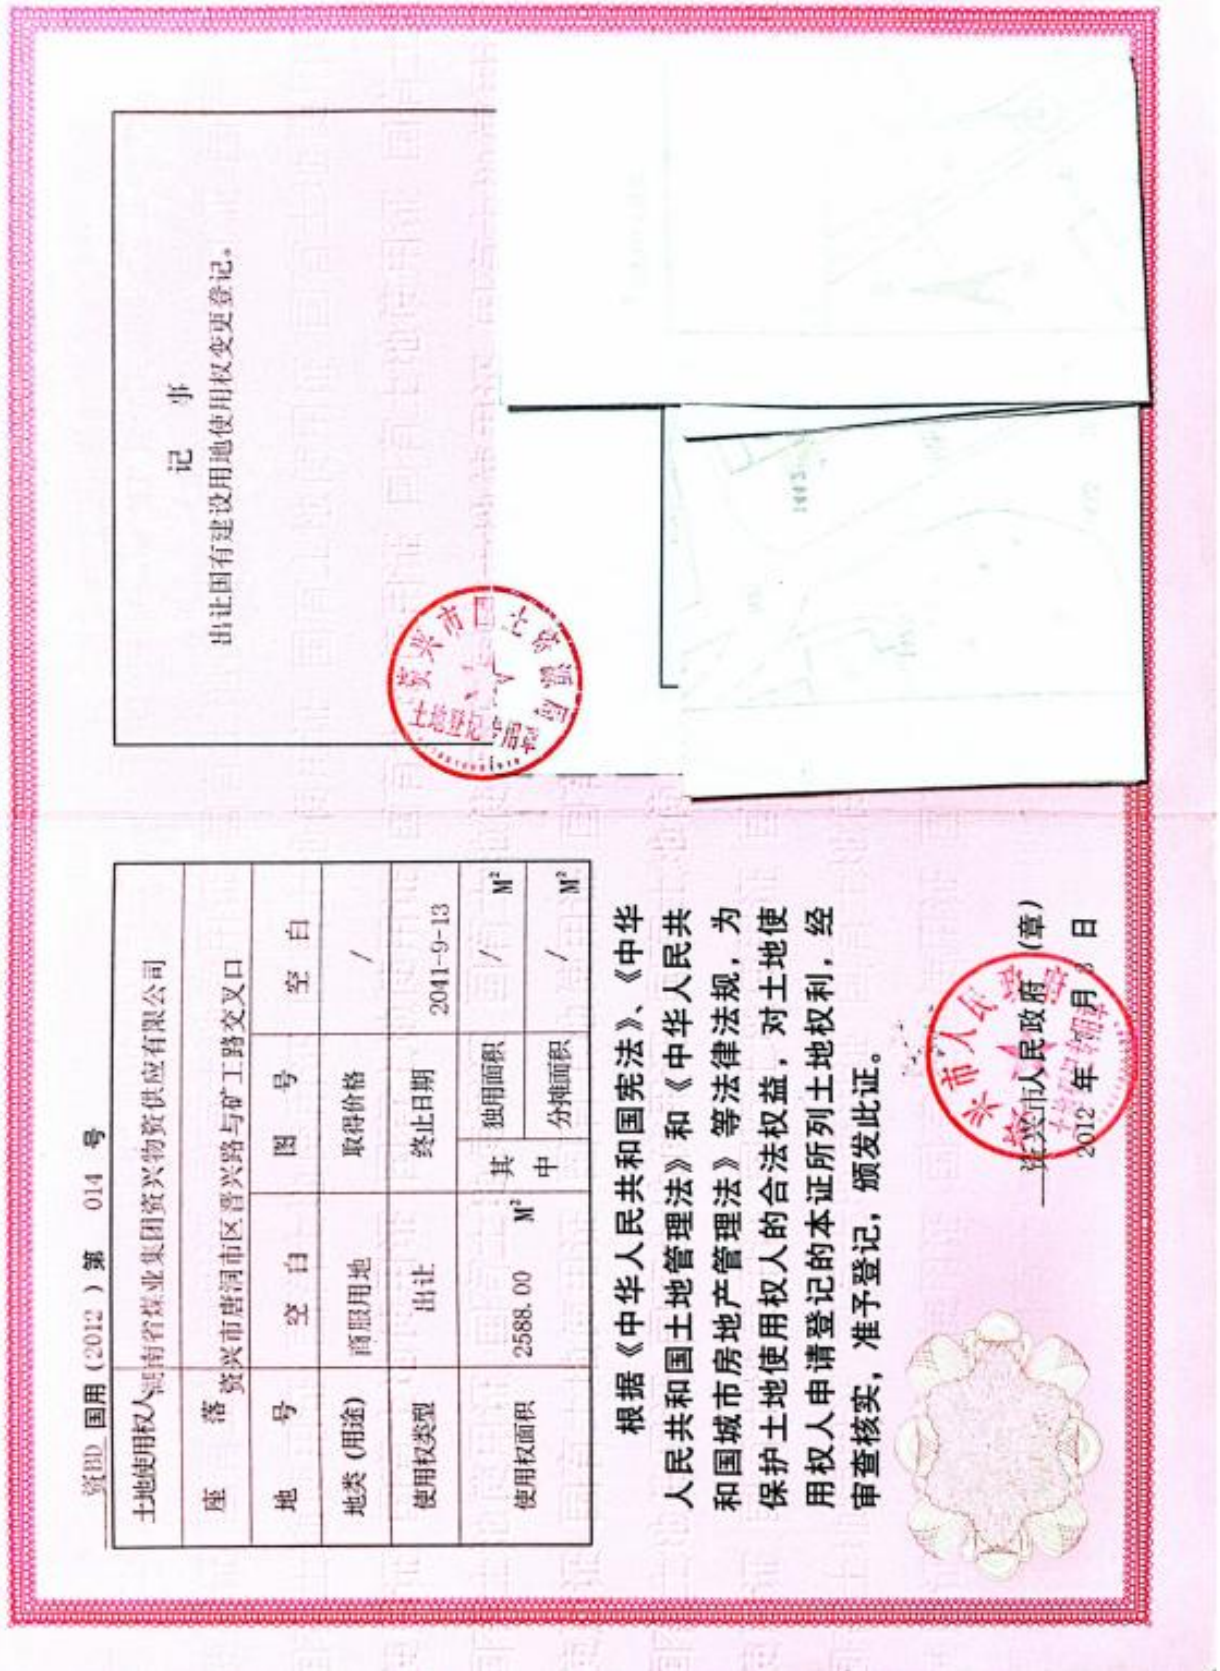 资国 国用 (2012) 第 014 号
土地使用权人 湖南省煤业集团资兴物资供应有限公司
座 落 资兴市唐洞市区晋兴路与矿工路交叉口
地 号 空 白 图 号 空 白
地类 (用途) 商服用地 取得价格 /
使用权类型 出让 终止日期 2041-9-13
使用权面积 2588.00 M² 其中 独用面积 / M²
分摊面积 / M²
根据《中华人民共和国宪法》、《中华
人民共和国土地管理法》和《中华人民共
和国城市房地产管理法》等法律法规，为
保护土地使用权人的合法权益，对土地使
用权人申请登记的本证所列土地权利，经
审查核实，准予登记，颁发此证。
资兴市人民政府 (章)
2012 年 月 日
记 事
出让国有建设用地使用权变更登记。
资兴市国土资源局
土地登记专用章